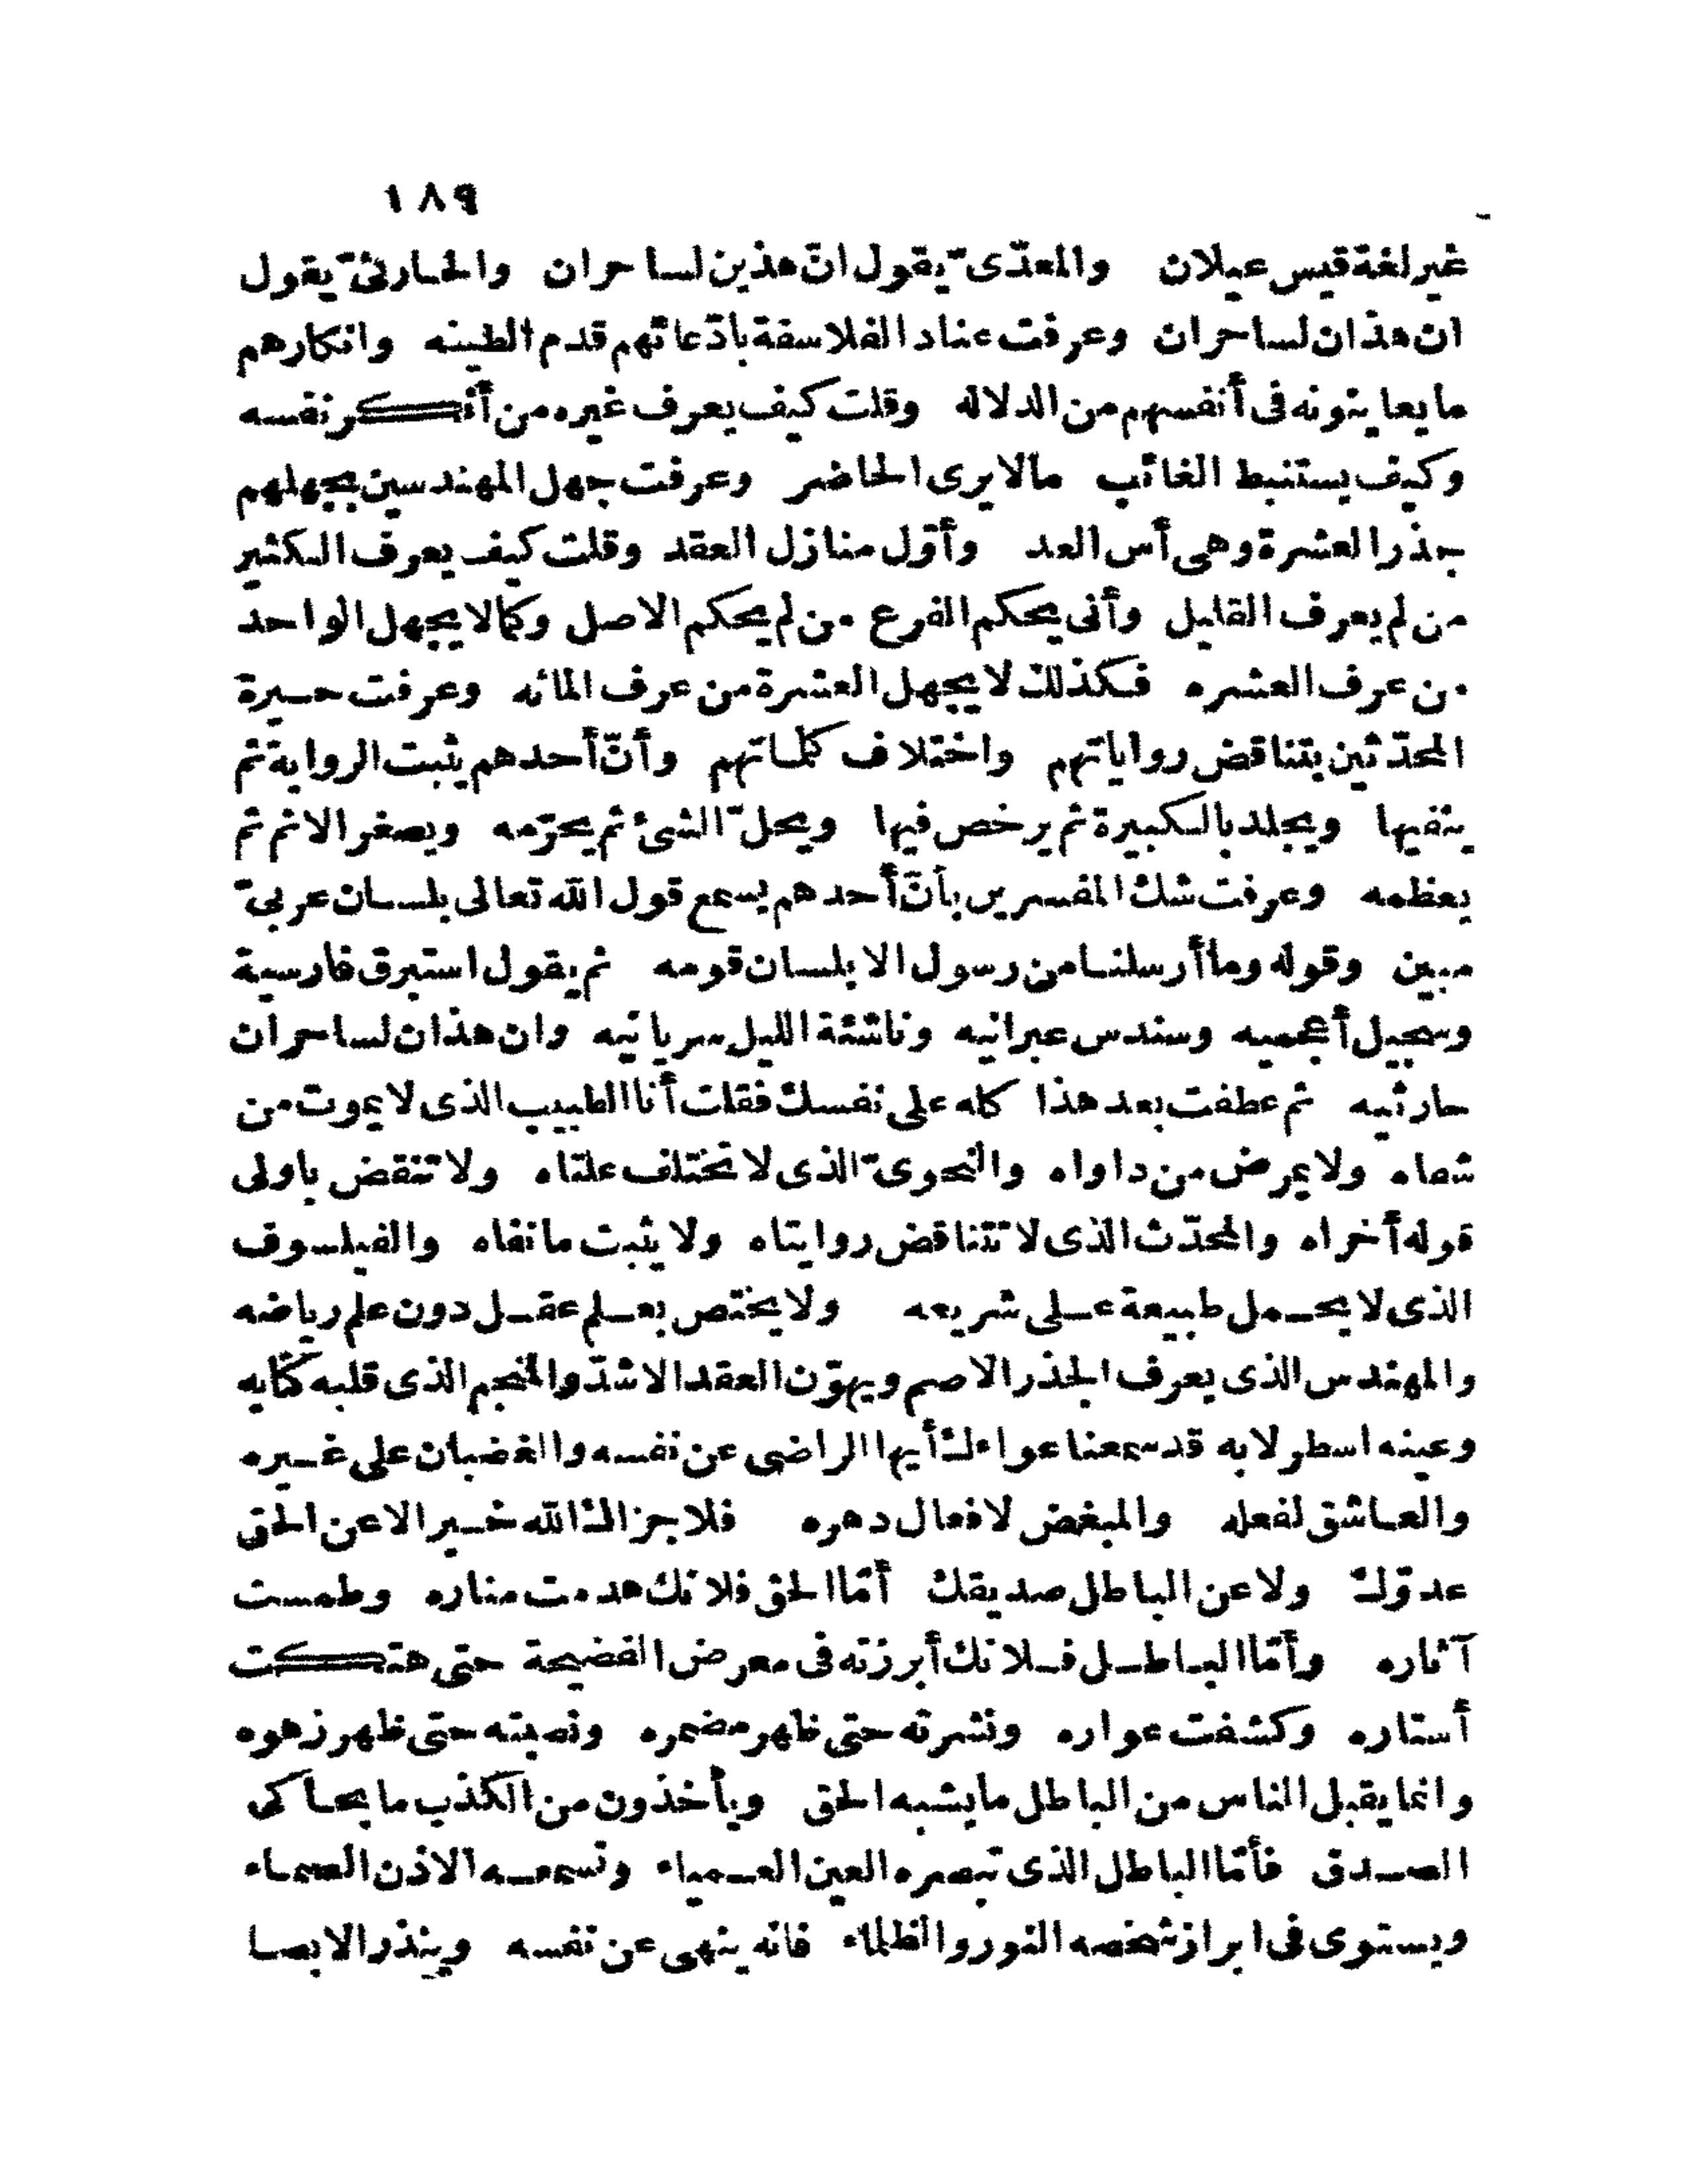 ١٨٩
غير لغة قيس عيلان والمعدّىّ يقول انّ هذين لساحران والحارثىّ يقول
ان هذان لساحران وعرفت عناد الفلاسفة بادّعائهم قدم الطينه وانكارهم
ما يعاينونه فى أنفسهم من الدلاله وقلت كيف يعرف غيره من أنكر نفسه
وكيف يستنبط الغائب مالا يرى الحاضر وعرفت جهل المهندسين بجهلهم
بجذر العشرة وهى أس العد وأوّل منازل العقد وقلت كيف يعرف الكثير
من لم يعرف القليل وأنى يحكم الفرع من لم يحكم الاصل وكما لا يجهل الواحد
من عرف العشره فكذلك لا يجهل العشرة من عرف المائه وعرفت حيرة
المحدّثين بتناقض رواياتهم واختلاف كلماتهم وأنّ أحدهم يثبت الرواية ثم
ينفيها ويجلد بالكبيرة ثم يرخص فيها ويحلّ الشئ ثم يحرّمه ويصغر الاثم ثم
يعظمه وعرفت شك المفسرين بأنّ أحدهم يسمع قول الله تعالى بلسان عربىّ
مبين وقوله وما أرسلنا من رسول الا بلسان قومه ثم يقول استبرق فارسية
وسجيل أعجميه وسندس عبرانيه وناشئة الليل سريانيه وان هذان لساحران
حارثيه ثم عطفت بعد هذا كله على نفسك فقلت أنا الطبيب الذى لا يموت من
شفاه ولا يمرض من داواه والنحوىّ الذى لا تختلف علتاه ولا تنقض باولى
قوله أخراه والمحدّث الذى لا تتناقض روايتاه ولا يثبت ما نفاه والفيلسوف
الذى لا يحمل طبيعة على شريعه ولا يختص بعلم عقل دون علم رياضه
والمهندس الذى يعرف الجذر الاصم ويهوّن العقد الاشدّ والمنجم الذى قلبه كتابه
وعينه اسطرلابه قد سمعنا عواءك أيها الراضى عن نفسه والغضبان على غيره
والعاشق لفعله والمبغض لافعال دهره فلا جزاك الله خيرا لا عن الحق
عدوّك ولا عن الباطل صديقك أمّا الحق فلانك هدمت مناره وطمست
آثاره وأمّا الباطل فلانك أبرزته فى معرض الفضيحة حتى هتكت
أستاره وكشفت عواره ونشرته حتى ظهر مضمره ونصبته حتى ظهر زهوه
وانما يقبل الناس من الباطل ما يشبه الحق ويأخذون من الكذب ما يحاكى
الصدق فأمّا الباطل الذى تبصره العين العمياء وتسمعه الاذن الصماء
ويستوى فى ابراز شخصه النور والظلماء فانه ينهى عن نفسه وينذر الابصا